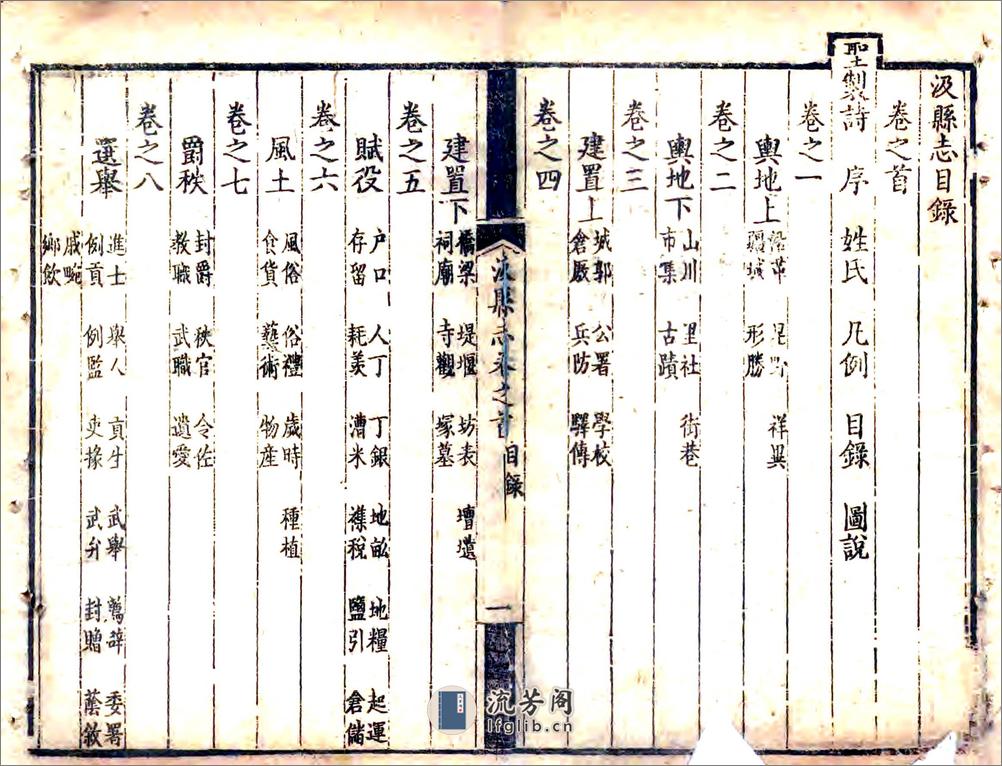 汲縣志目錄
卷之首
聖製詩 序 姓氏 凡例 目錄 圖說
卷之一
輿地上 沿革 星野 祥異
疆域 形勝
卷之二
輿地下 山川 里社 街巷
市集 古蹟
卷之三
建置上 城郭 公署 學校
倉厫 兵防 驛傳
卷之四
汲縣志卷之首 目錄 一
建置下 橋梁 堤堰 坊表 壇壝
祠廟 寺觀 塚墓
卷之五
賦役 户口 人丁 丁銀 地畝 地糧 起運
存留 耗羡 漕米 襍稅 鹽引 倉儲
卷之六
風土 風俗 俗禮 歲時 種植
食貨 藝術 物産
卷之七
爵秩 封爵 秩官 令佐
教職 武職 遺愛
卷之八
選舉 進士 舉人 貢生 武舉 薦辟 委署
例貢 例監 吏掾 武弁 封贈 蔭敘
戚畹
鄉飲
流芳阁
lfglib.cn